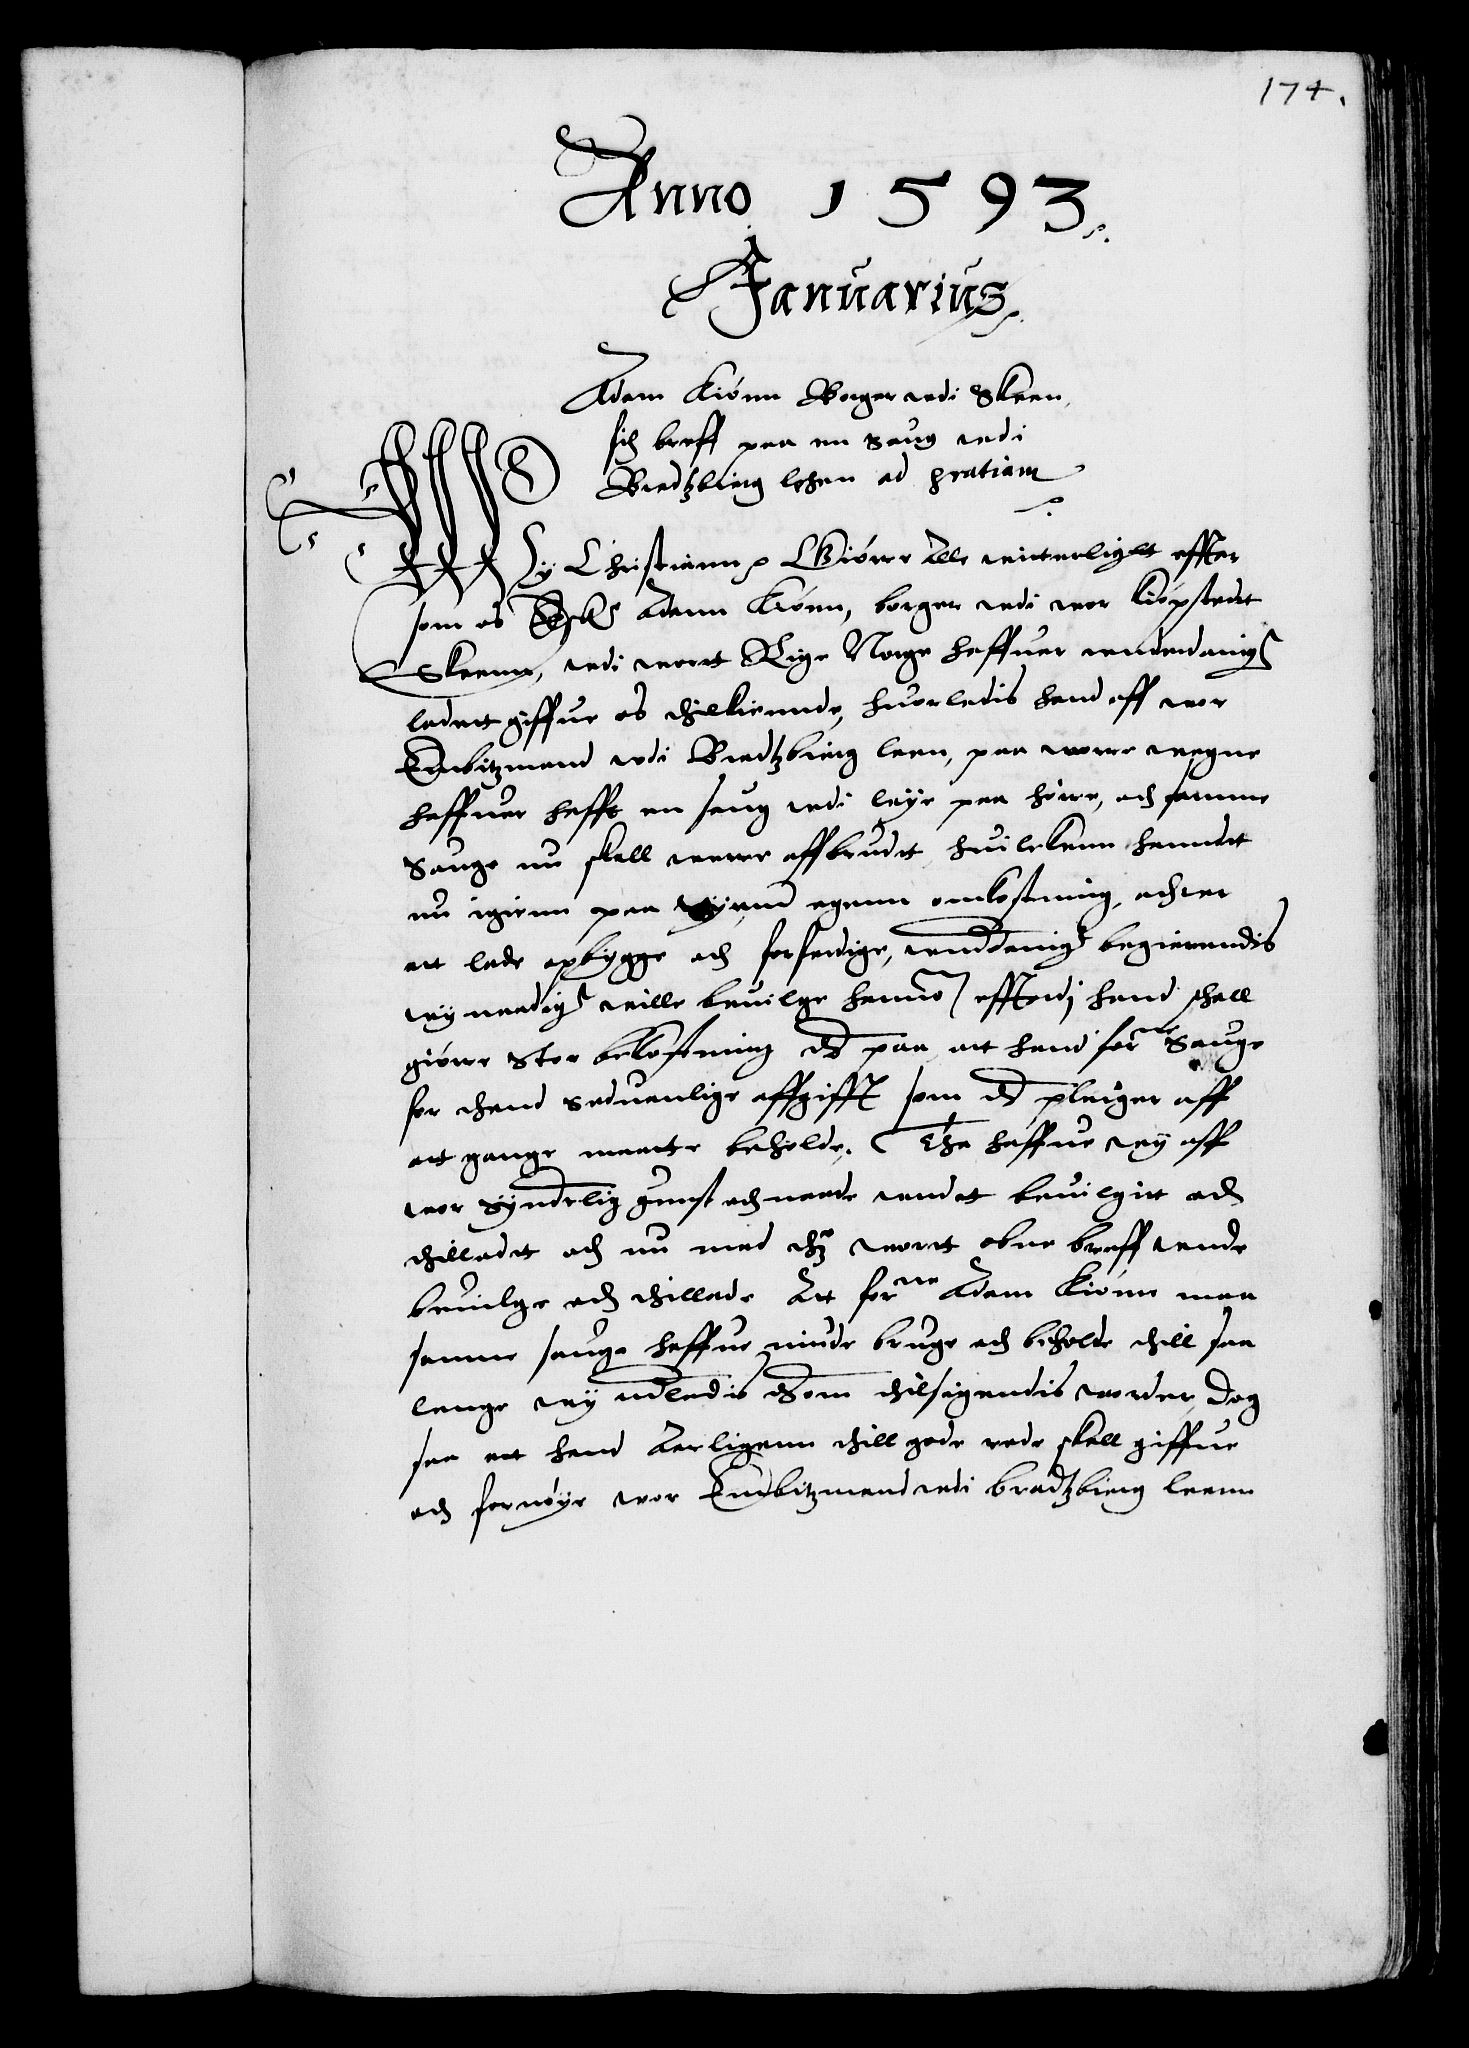 174.
Anno 1593.
Januarius
Adam Kiönn Borger udi Skeen
fick breff paa en Saug udi
Bradtzbierg lehen ad gratiam
Wy Christiann Giöre Alle witterligtt effter
som os Adam Kiönn, borger udi wor kiöpstedt
Skeenn, udi wortt Rige Norge haffuer underdanigst
ladett giffue os thilkiennde, huorledis hand aff wor
Embitzmand udi Bradtzbierg leen, paa wore wegne
haffuer hafft en saug udi leye paa höre, och samme
Sauge nu skall were affbrudt huilckenn hannd
nu igienn paa egenn omkostning, acter
att lade opbygge och forferdige, underdanigst begierendis
wy naadigst wille beuilge hannom effterdj hand schall
giöre Stor bekostning der paa, att hand forne Sauge
for thend Seduanlige affgifft som der pleiger aff
att gange maatte beholde. Tha haffue wy aff
wor Synderlig gunst och naade undt beuilgitt och
thilladt och nu med thz wortt obne breff unde
beuilge och thillade Att forne Adam Kiönn maa
samme sauge haffue niude bruge och beholde thill saa
lenge wy anderledis thilsigendis worder, Dog
saa att hand Aarligenn thill gode rede skall giffue
och fornöye wor Embitzmand udi bradtzbierg leenn